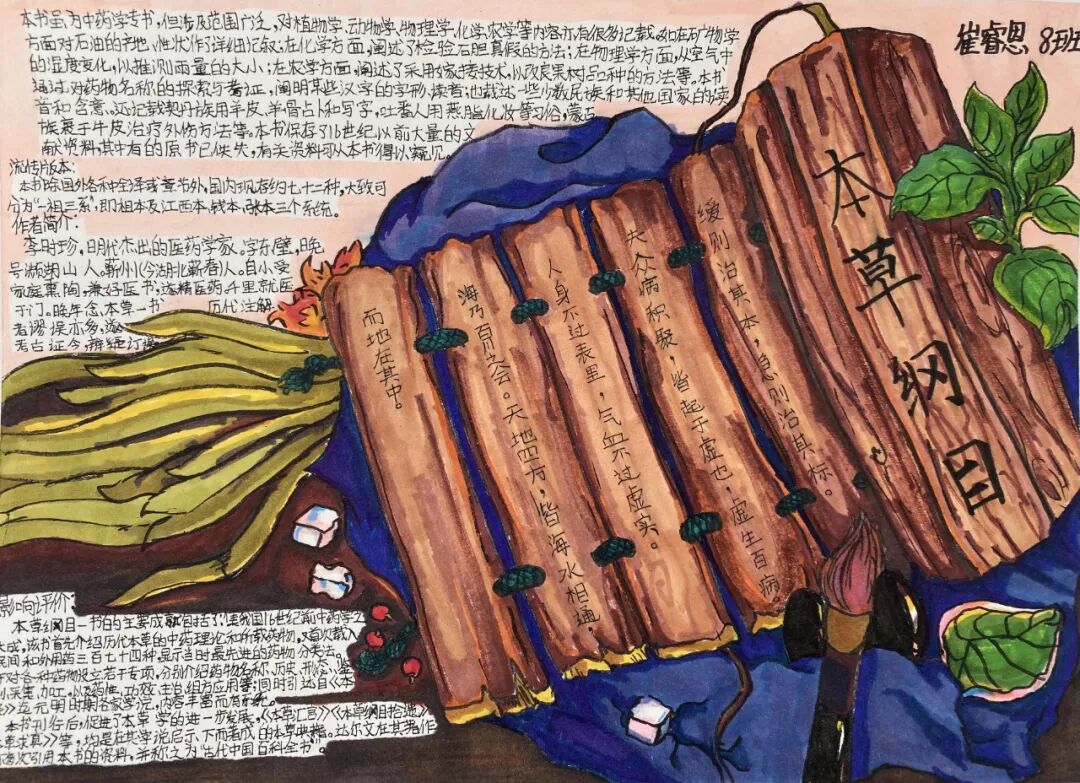 本书虽为中药学专书,但涉及范围广泛,对植物学,动物学,物理学,化学,农学等内容亦有很多记载,如在矿物学
方面对石油的产地,性状作了详细记叙;在化学方面,阐述了检验石胆真假的方法;在物理学方面,从空气中
的湿度变化,以推测雨量的大小;在农学方面,阐述了采用嫁接技术,以改良果树品种的方法等。本书
通过对药物名称的探索与考证,阐明某些汉字的字形,读者;也载述一些少数民族和其他国家的读
音和含意。还记载契丹族用羊皮、羊骨占卜和写字,吐蕃人用燕脂化妆等习俗,蒙古
族裹于牛皮治疗外伤方法等。本书保存了16世纪以前大量的文
献资料,其中有的原书已佚失,有关资料可从本书得以窥见。
流传版本:
本书除国外各种全译或章节外,国内现存约七十二种,大致可
分为“一祖三系”,即祖本及江西本,钱本,张本三个系统。
作者简介:
李时珍,明代杰出的医药学家,字东璧,晚
号濒湖山人。蕲州(今湖北蕲春)人。自小受
家庭熏陶,兼好医书,遂精医药,千里就医
于门。晚年念本草一书 历代注解
者谬误亦多,遂
考古证今,辨疑订误
崔睿恩 8班
本草纲目
缓则治其本,急则治其标。
夫众病积聚,皆起于虚也,虚生百病
人身不过表里,气血不过虚实。
海乃百川之会。天地四方,皆海水相通,
而地在其中。
影响评价:
本草纲目一书的主要成就包括了:是我国16世纪前中药学
大成,该书首先介绍历代本草的中药理论和所载药物,又首次载入
民间和外用药三百七十四种,显示当时最先进的药物分类法。
对各种药物设立若干专项,分别介绍药物名称、历史、形态、
采集、加工,以及药性、功效、主治、组方应用等;同时引述自《本
迄元明时期各家学说,内容丰富而有系统。
本书刊行后,促进了本草学的进一步发展,《本草汇言》《本草纲目拾遗》
等,均是在其学说启示下而著成的本草典籍。达尔文在其著作
多次引用本书的资料,并称之为“古代中国百科全书”。